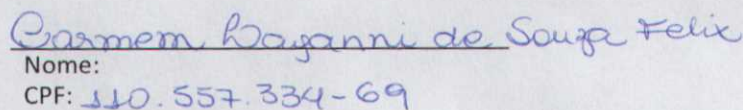 Carmem Dayanni de Souza Felix
Nome:
CPF: 110.557.334-69